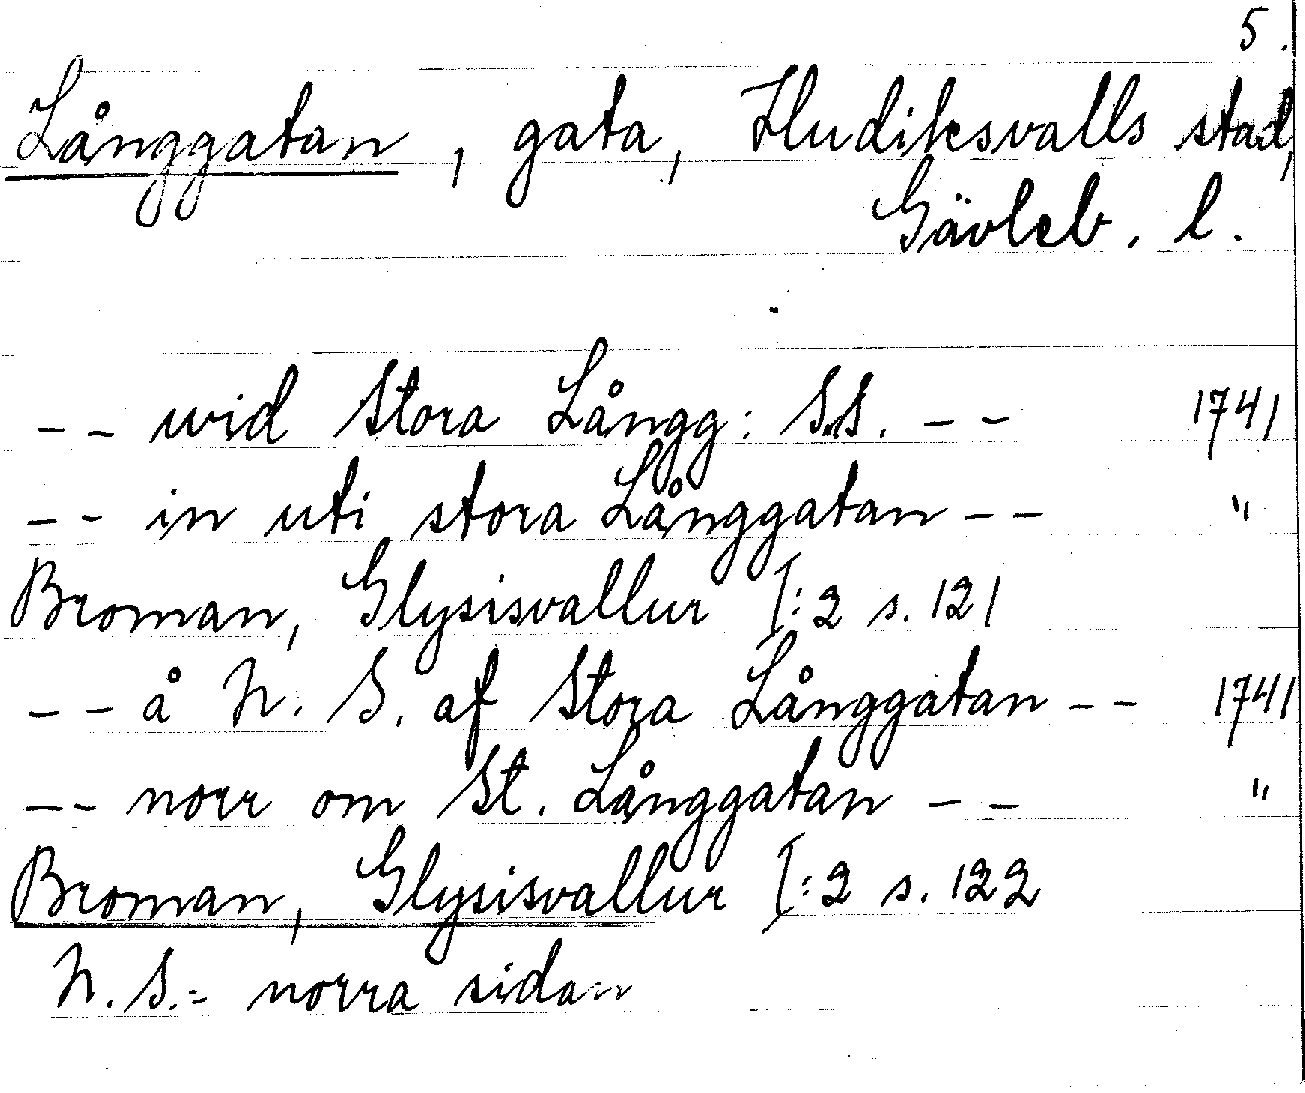 5.
Långgatan, gata, Hudiksvalls stad,
Gävleb. l.
-- wid Stora Långg: S.S. -- 1741
-- in uti stora Långgatan -- "
Broman, Glysisvallur I:2 s. 121
-- å N. S. af Stora Långgatan -- 1741
-- norr om St. Långgatan -- "
Broman, Glysisvallur I:2 s. 122
N. S. = norra sidan